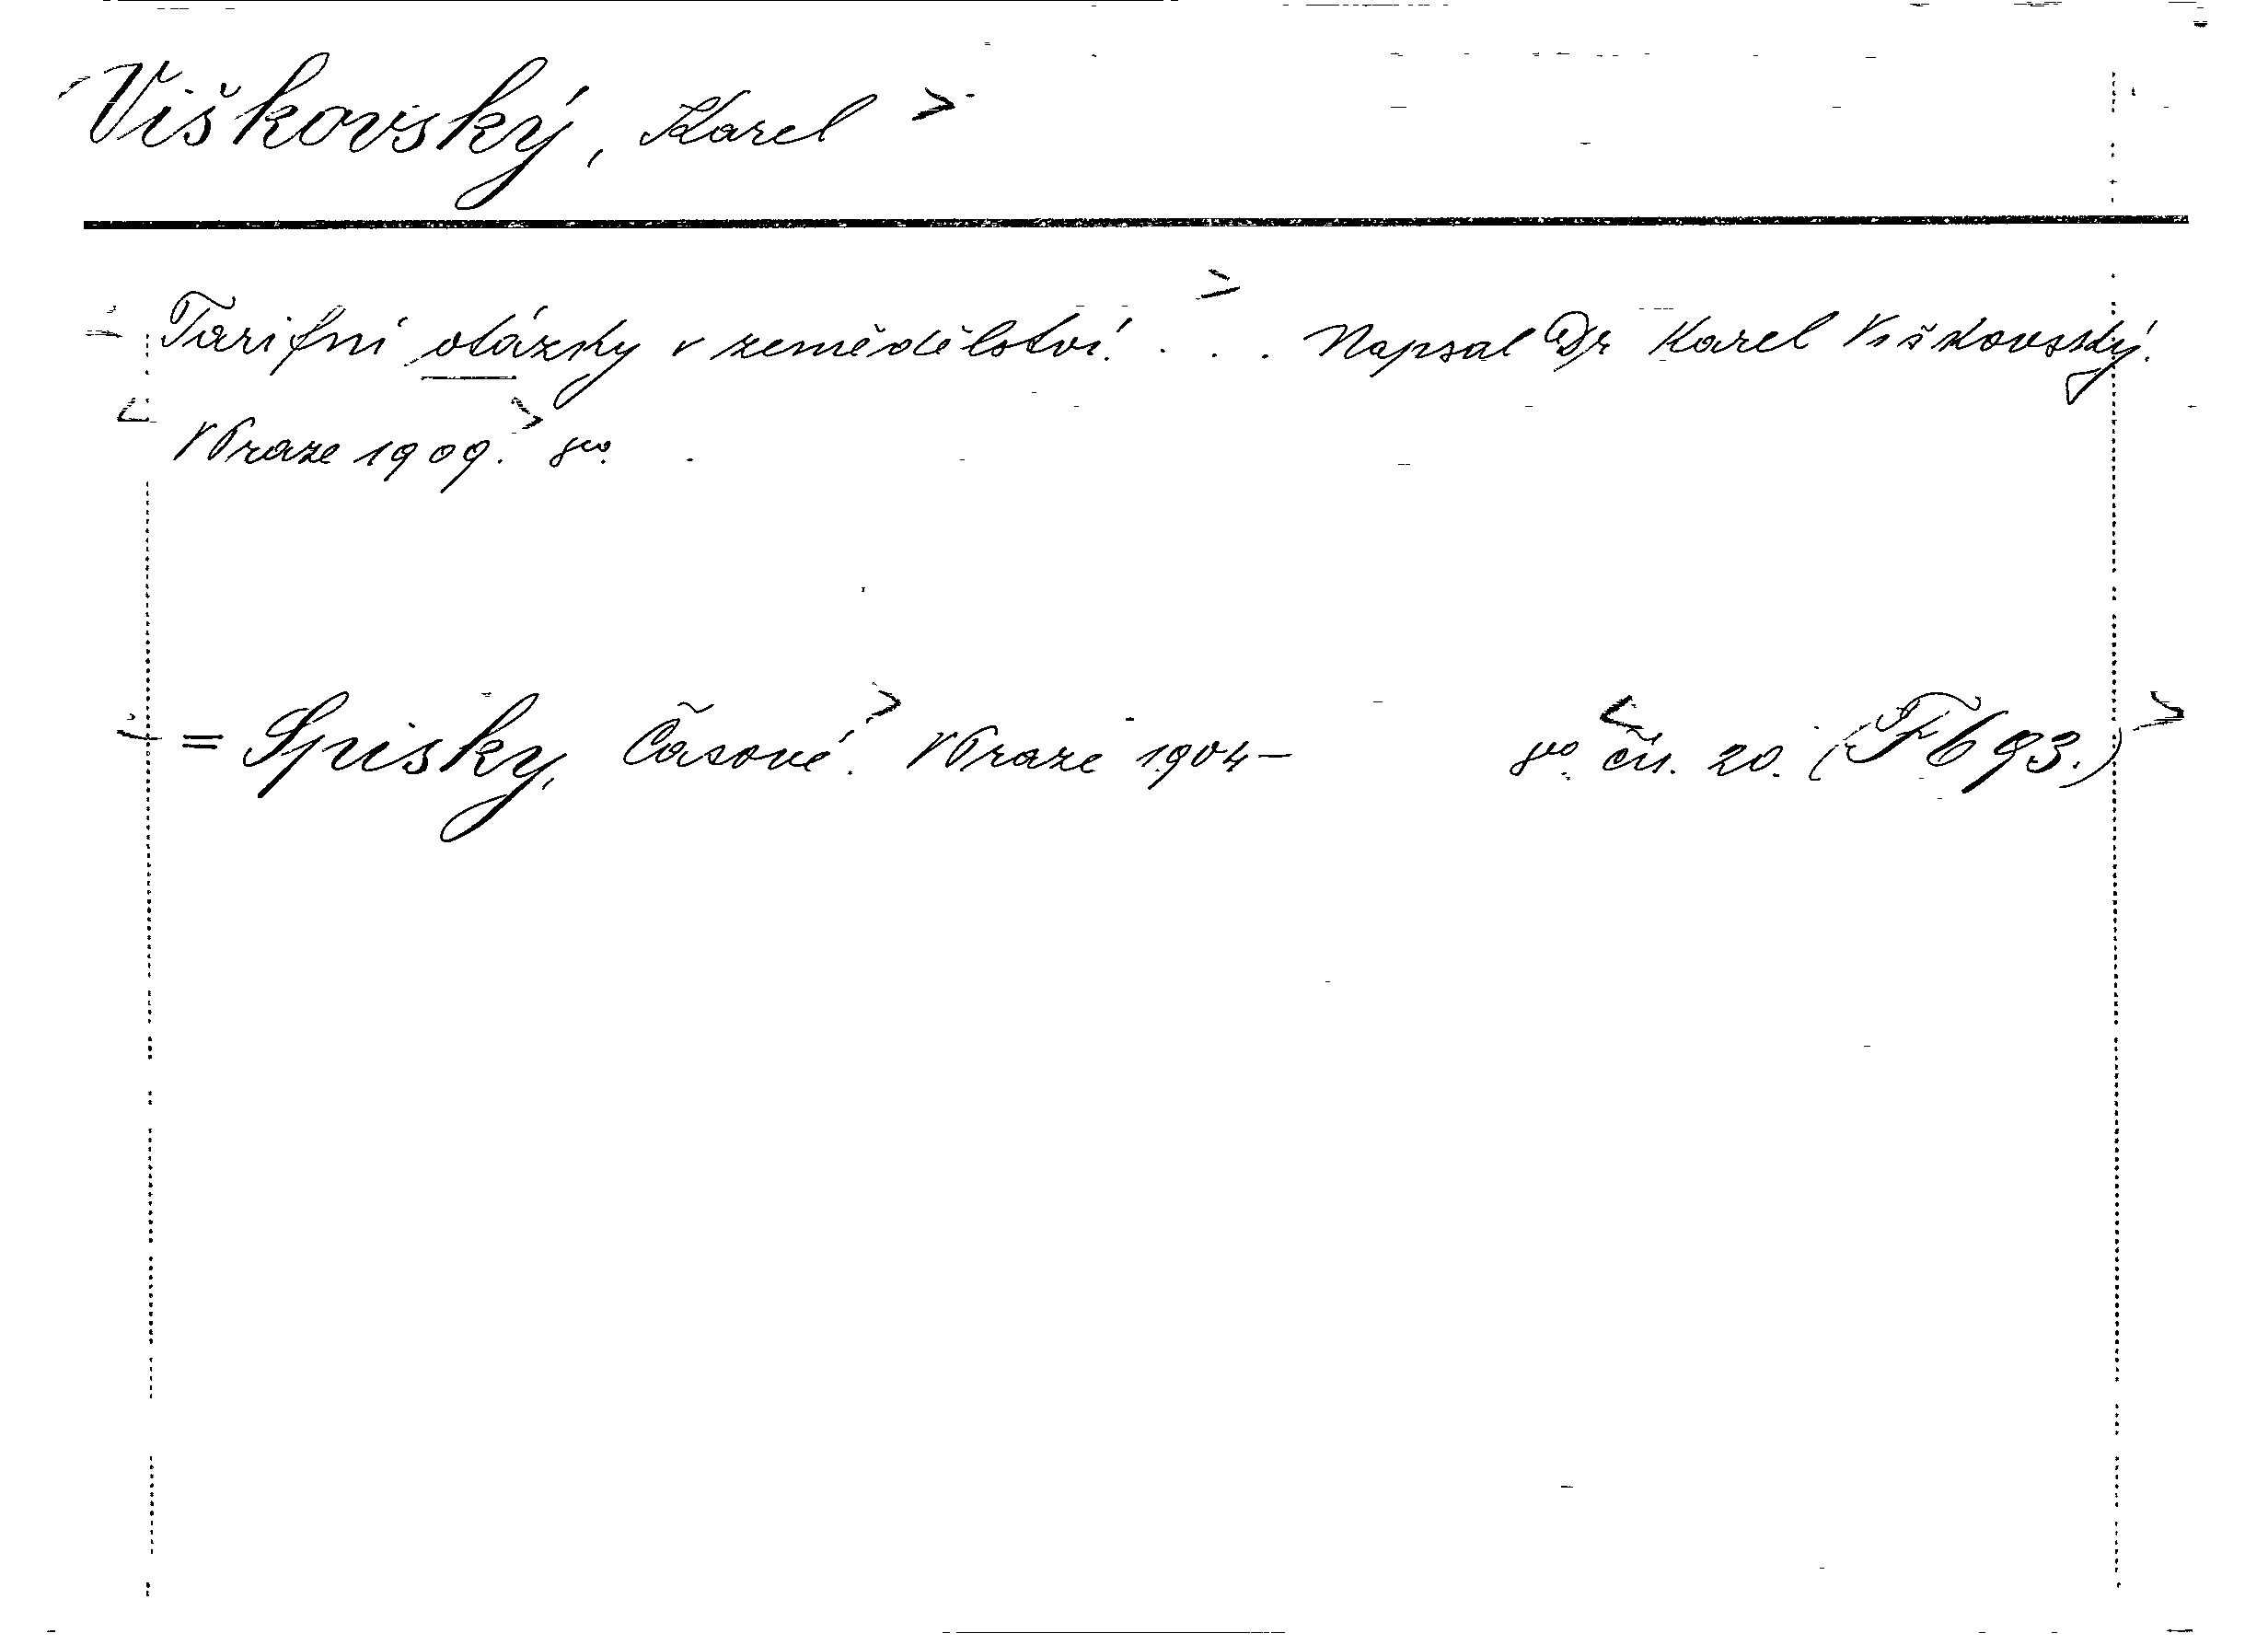 Viškovský, Karel
Tarifní otázky v zemědělství. . . . Napsal Dr Karel Viškovský.
V Praze 1909. 8vo.
= Spisky, Časové. V Praze 1904– 8vo. čís. 20. (F b 93.)